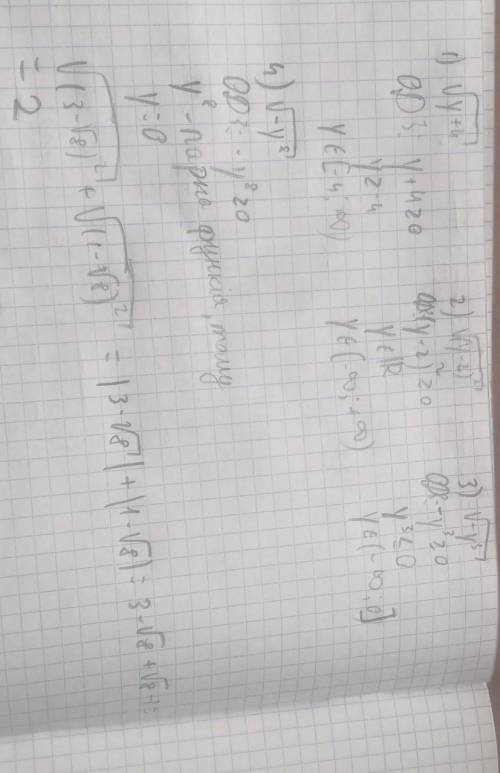 1) √(y+4)
ОДЗ: y+4≥0
y≥-4
y∈[-4; +∞)
2) √(y-2)²
ОДЗ: (y-2)²≥0
y∈R
y∈(-∞; +∞)
3) √-y³
ОДЗ: -y³≥0
y³≤0
y∈(-∞; 0]
4) √-y⁸
ОДЗ: -y⁸≥0
y⁸ - парна функція, тому
y=0
√(3-√8)² + √(1-√8)² = |3-√8| + |1-√8| = 3-√8+√8-1=
= 2